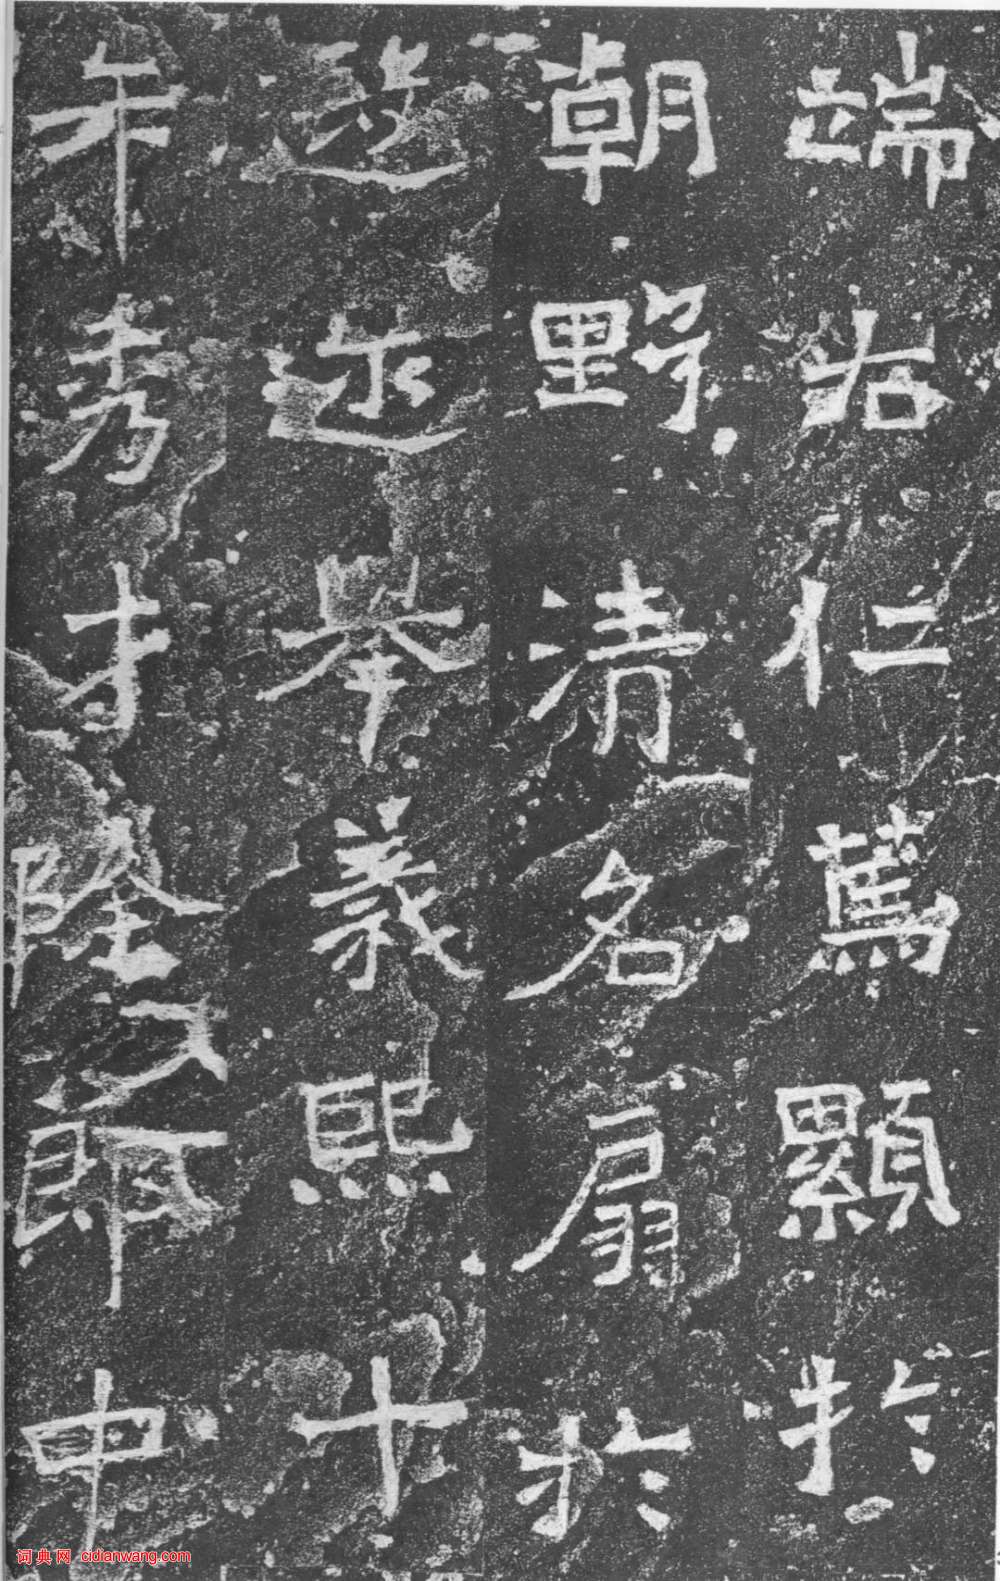 端右仁篤顯於
朝野清名扇於
遐迩舉義熙十
年秀才除郎中
词典网 cidianwang.com